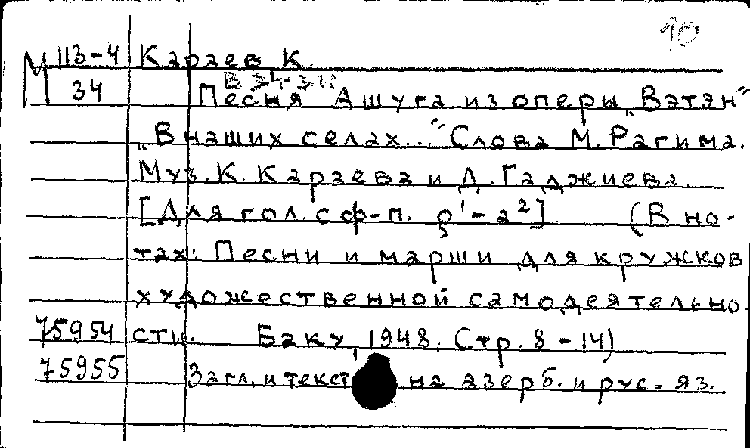 10
М 113-4 Караев К.
34 Песня Ашуга из оперы „Вэтэн"
„В наших селах..." Слова М. Рагима.
Муз. К. Караева и Д. Гаджиева.
[Для гол. с ф-п. d¹-a²] (В но-
тах: Песни и марши для кружков
художественной самодеятельно-
75954 сти. Баку, 1948. Стр. 8-14)
75955 Загл. и текст на азерб. и рус. яз.